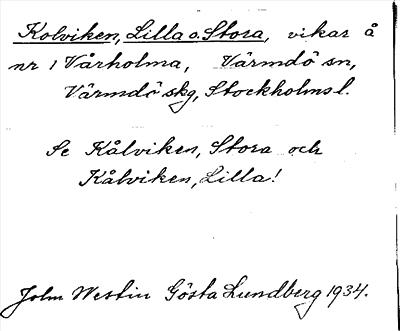 Kolviken, Lilla o. Stora, vikar å
nr 1 Vårholma, Värmdö sn,
Värmdö skg, Stockholms l.
Se Kålviken, Stora och
Kålviken, Lilla!
John Westin Gösta Lundberg 1934.